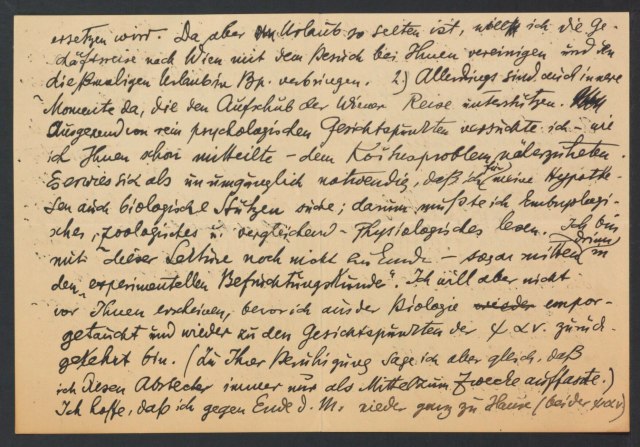 ersetzen wird. Da aber Urlaub so selten ist, will ich die Ge-
däftsreise nach Wien mit dem Besuch bei Ihnen vereinigen und den
diesmaligen Urlaub in Bp. verbringen. 2.) Allerdings sind auch innere
Momente da, die den Aufschub der Wiener Reise unterstützen.
Ausgehend von rein psychologischen Gesichtspunkten versuchte ich – wie
ich Ihnen schon mitteilte – dem Koitusproblem näherzutreten.
Es erwies sich als unumgänglich notwendig, daß ich für meine Hypothe-
sen auch biologische Stützen suche; darum mußte ich Embryologi-
sches, Zoologisches u. vergleichend-Physiologisches lesen. Ich bin
mit dieser Lektüre noch nicht zu Ende – sogar mitten drinn in
den „experimentellen Befruchtungskunde". Ich will aber nicht
vor Ihnen erscheinen, bevor ich aus der Biologie wieder empor-
getaucht und wieder zu den Gesichtspunkten der ψ α v. zurück-
gekehrt bin. (Zu Ihrer Beruhigung sage ich aber gleich, daß
ich diesen Abstecher immer nur als Mittel zum Zwecke auffasste.)
Ich hoffe, daß ich gegen Ende d. M. wieder ganz zu Hause (bei der ψ α v)